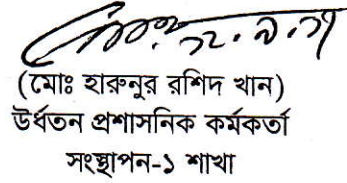 ১২.৯.২১
(মোঃ হারুনুর রশিদ খান)
উর্ধতন প্রশাসনিক কর্মকর্তা
সংস্থাপন-১ শাখা